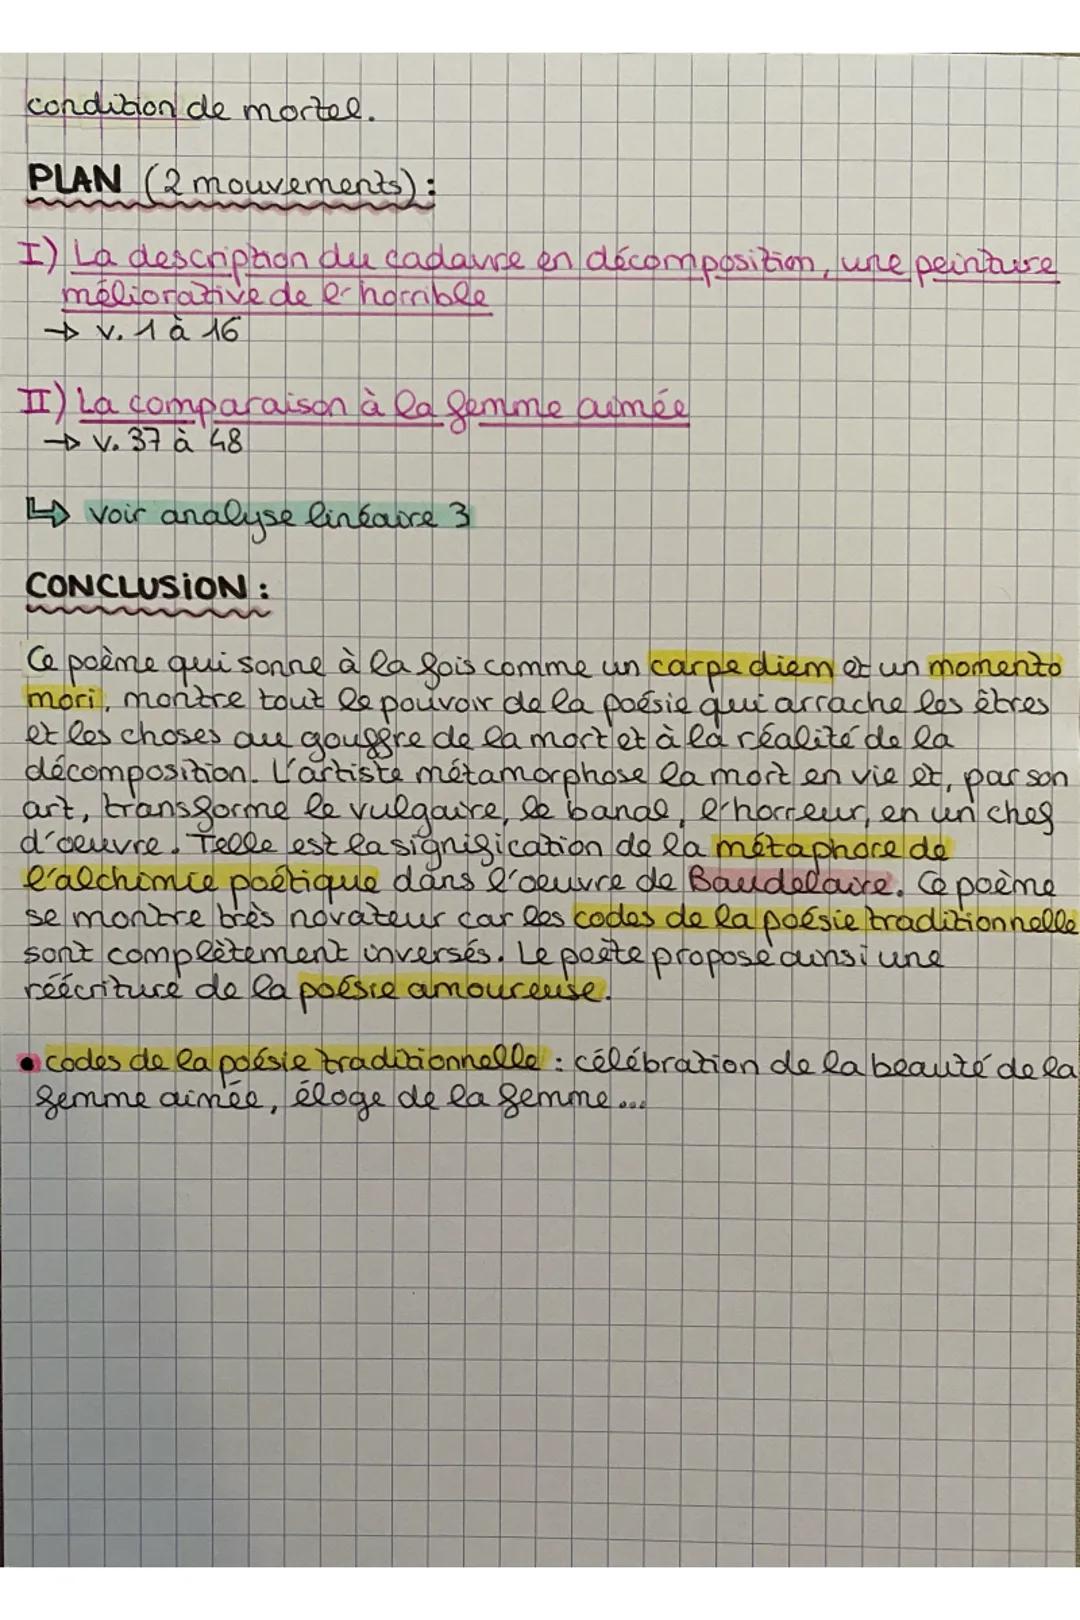 condition de mortel.
PLAN (2 mouvements) :
I) La description du cadavre en décomposition, une peinture
méliorative de l'horrible
→ v. 1 à 16
II) La comparaison à la femme aimée
→ v. 37 à 48
↳ voir analyse linéaire 3
CONCLUSION :
Ce poème qui sonne à la fois comme un carpe diem et un momento
mori, montre tout le pouvoir de la poésie qui arrache les êtres
et les choses au gouffre de la mort et à la réalité de la
décomposition. L'artiste métamorphose la mort en vie et, par son
art, transforme le vulgaire, le banal, l'horreur, en un chef
d'oeuvre. Telle est la signification de la métaphore de
l'alchimie poétique dans l'oeuvre de Baudelaire. Ce poème
se montre très novateur car les codes de la poésie traditionnelle
sont complètement inversés. Le poète propose ainsi une
réécriture de la poésie amoureuse.
• codes de la poésie traditionnelle : célébration de la beauté de la
femme aimée, éloge de la femme...